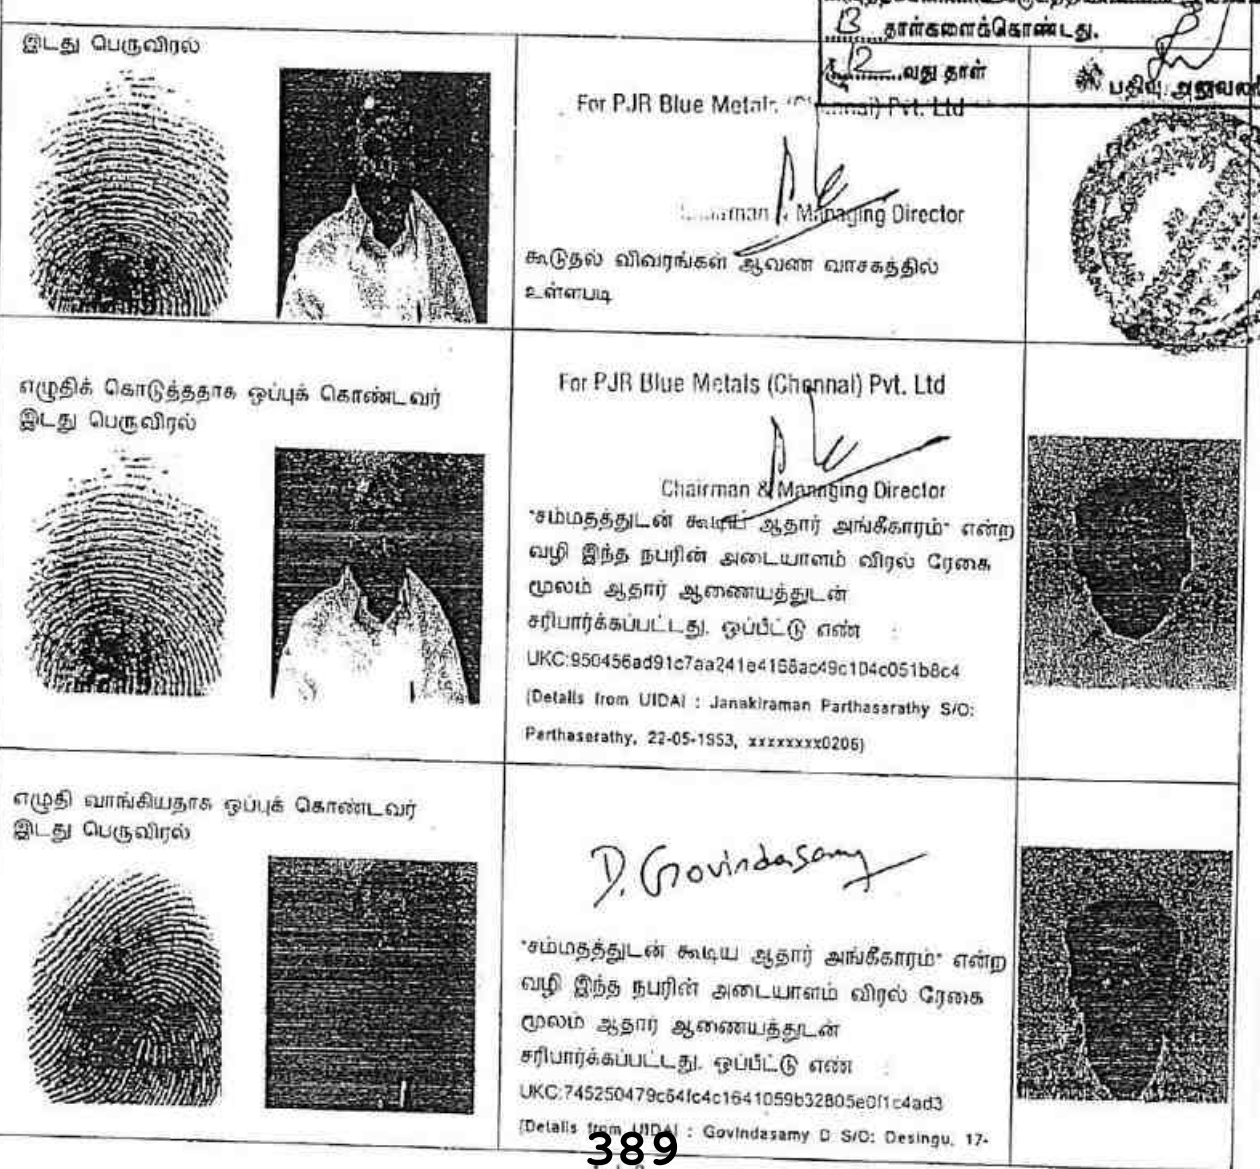 13 தாள்களைக்கொண்டது.
12 வது தாள்
பதிவு அலுவலர்
இடது பெருவிரல்
For PJR Blue Metals (Chennai) Pvt. Ltd
Managing Director
கூடுதல் விவரங்கள் ஆவண வாசகத்தில்
உள்ளபடி
எழுதிக் கொடுத்ததாக ஒப்புக் கொண்டவர்
இடது பெருவிரல்
For PJR Blue Metals (Chennai) Pvt. Ltd
Chairman & Managing Director
"சம்மதத்துடன் கூடிய ஆதார் அங்கீகாரம்" என்ற
வழி இந்த நபரின் அடையாளம் விரல் ரேகை
மூலம் ஆதார் ஆணையத்துடன்
சரிபார்க்கப்பட்டது. ஒப்பீட்டு எண் :
UKC:950456ad91c7aa241e4168ac49c104c051b8c4
(Details from UIDAI : Janakiraman Parthasarathy S/O:
Parthaserathy, 22-05-1953, xxxxxxxx0206)
எழுதி வாங்கியதாக ஒப்புக் கொண்டவர்
இடது பெருவிரல்
D. Govindasamy
"சம்மதத்துடன் கூடிய ஆதார் அங்கீகாரம்" என்ற
வழி இந்த நபரின் அடையாளம் விரல் ரேகை
மூலம் ஆதார் ஆணையத்துடன்
சரிபார்க்கப்பட்டது. ஒப்பீட்டு எண் :
UKC:745250479c64fc4c1641059b32805e0f1c4ad3
(Details from UIDAI : Govindasamy D S/O: Desingu, 17-
389